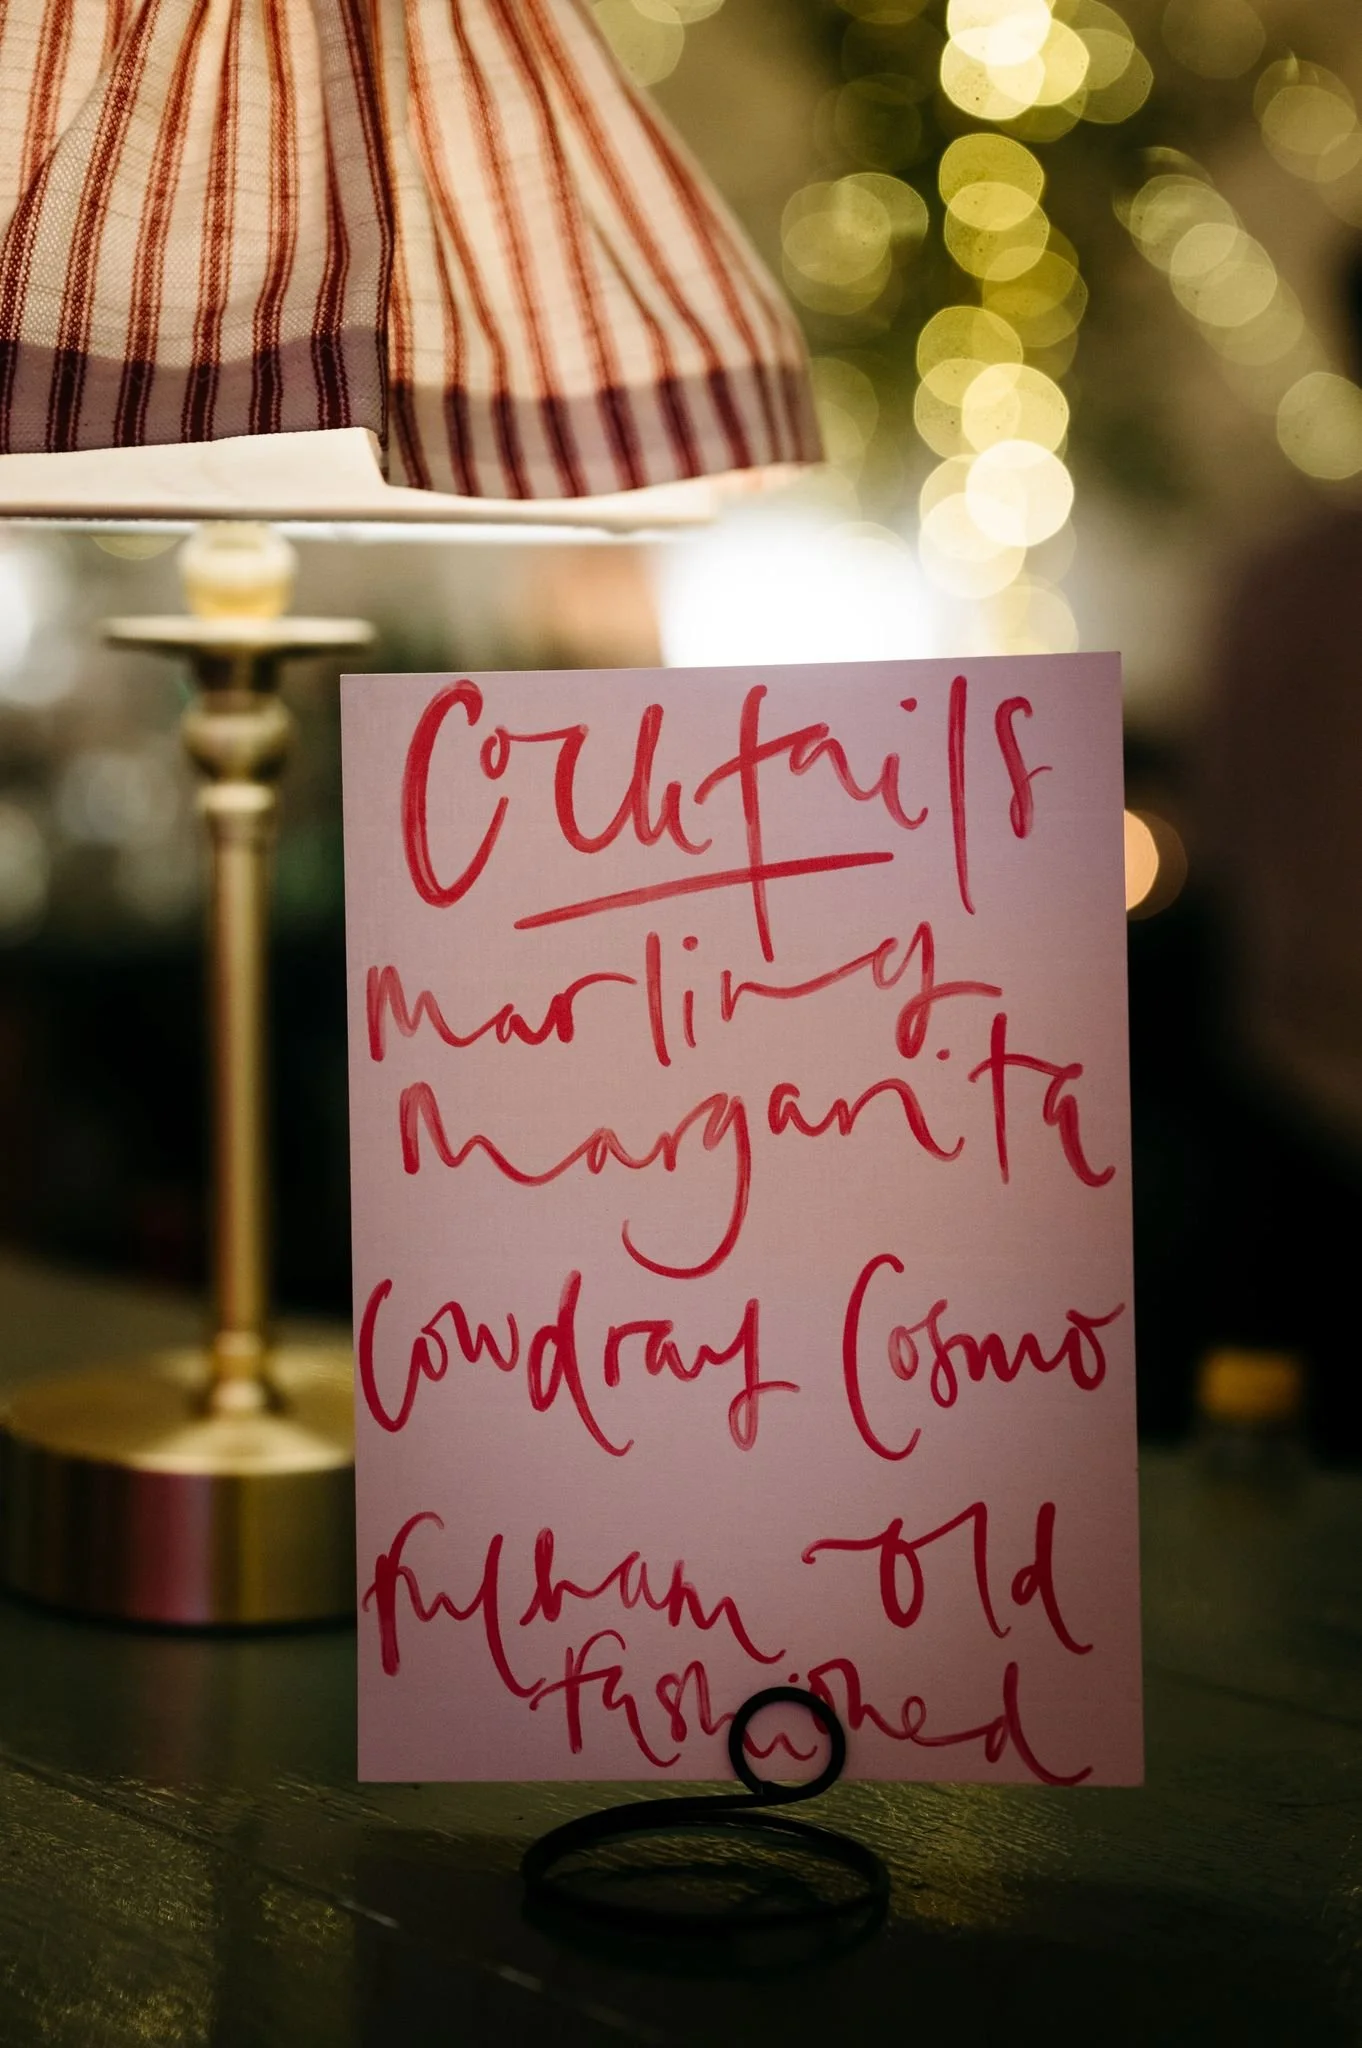 Cocktails
Marling
Margarita
Cowdray Cosmo
Fulham Old
Fashioned